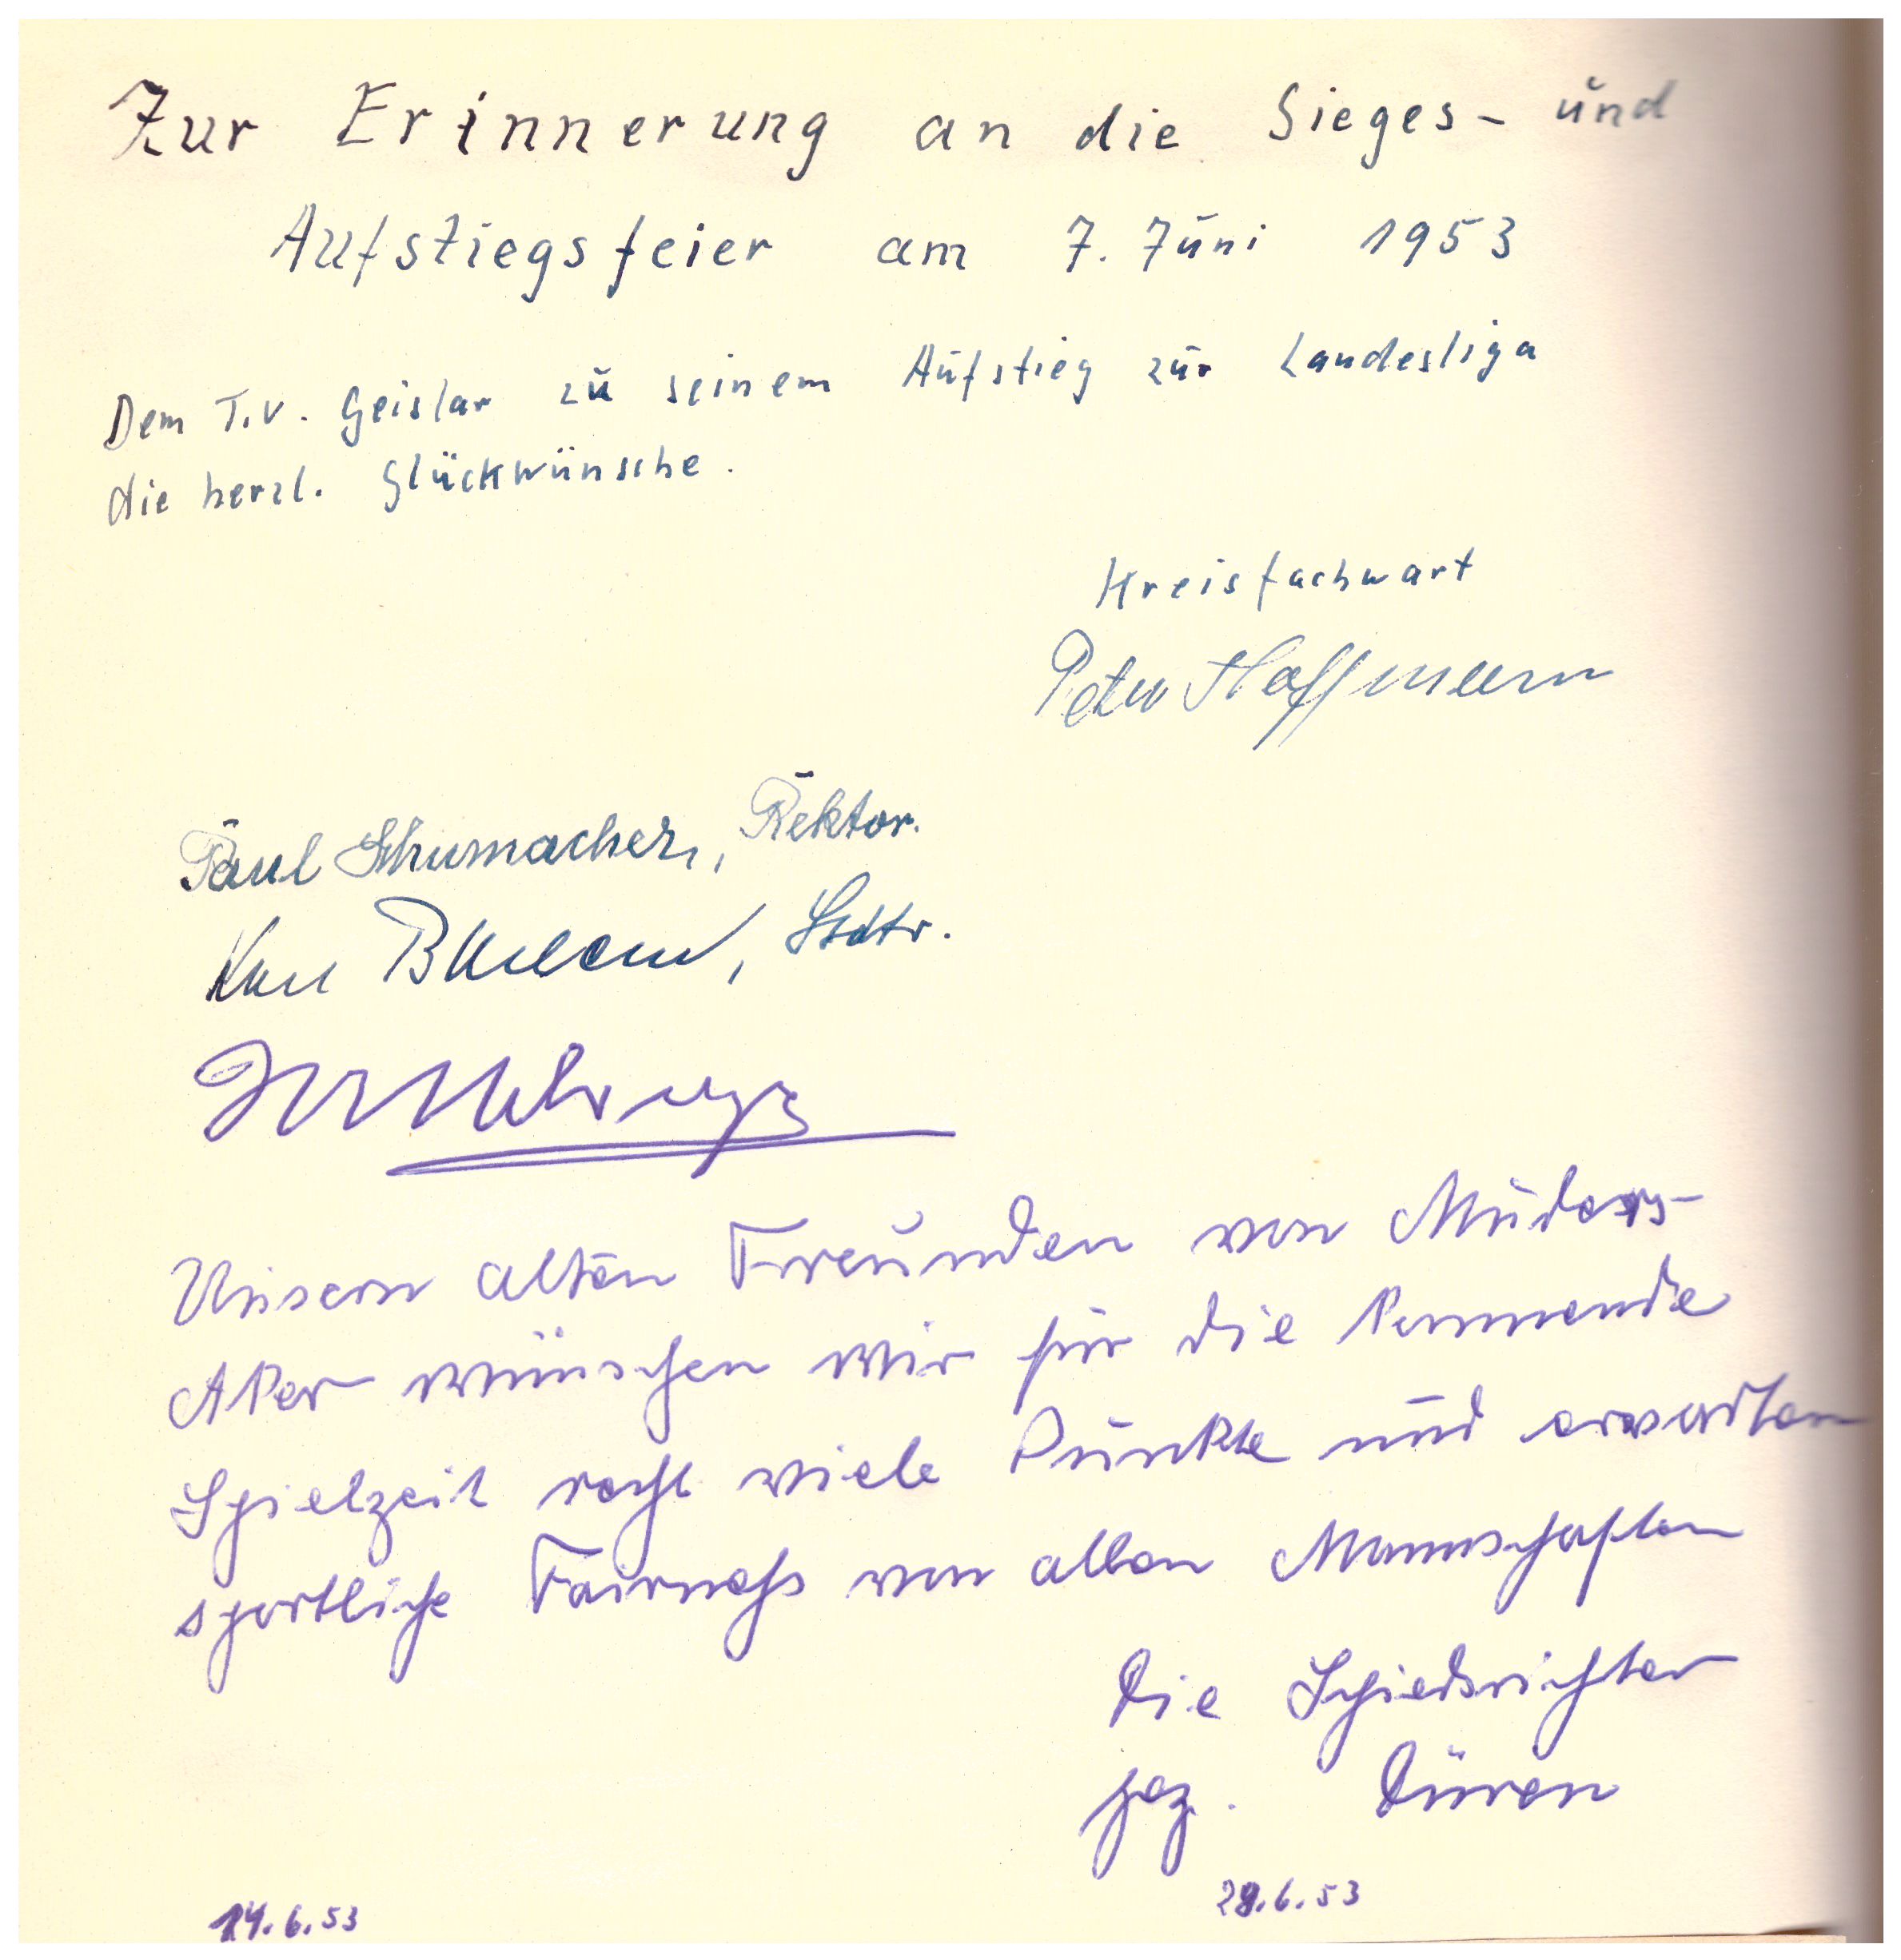 Zur Erinnerung an die Sieges- und
Aufstiegsfeier am 7. Juni 1953
Dem T.V. Geislar zu seinem Aufstieg zur Landesliga
die herzl. Glückwünsche.
Kreisfachwart
Peter Hoffmann
Paul Schumacher, Rektor.
Unsern alten Freunden von
wünschen wir für die kommende
Spielzeit recht viele Punkte und erwarten
sportliche Fairneß von allen Mannschaften
Die Schiedsrichter
gez. Düren
14.6.53
28.6.53